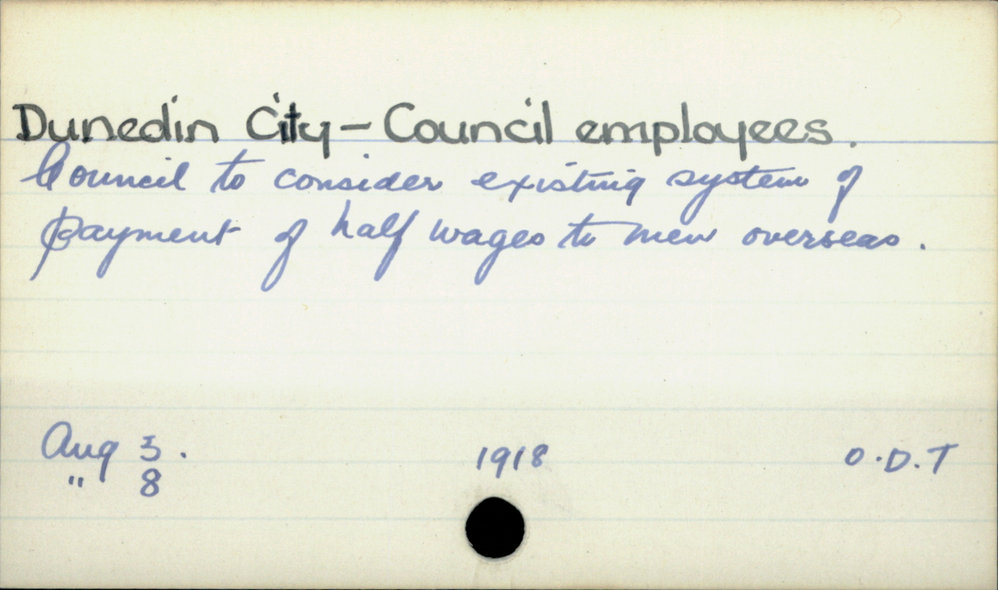 Dunedin City – Council employees.
Council to consider existing system of
payment of half wages to men overseas.
Aug 5. 1918 O.D.T
" 8